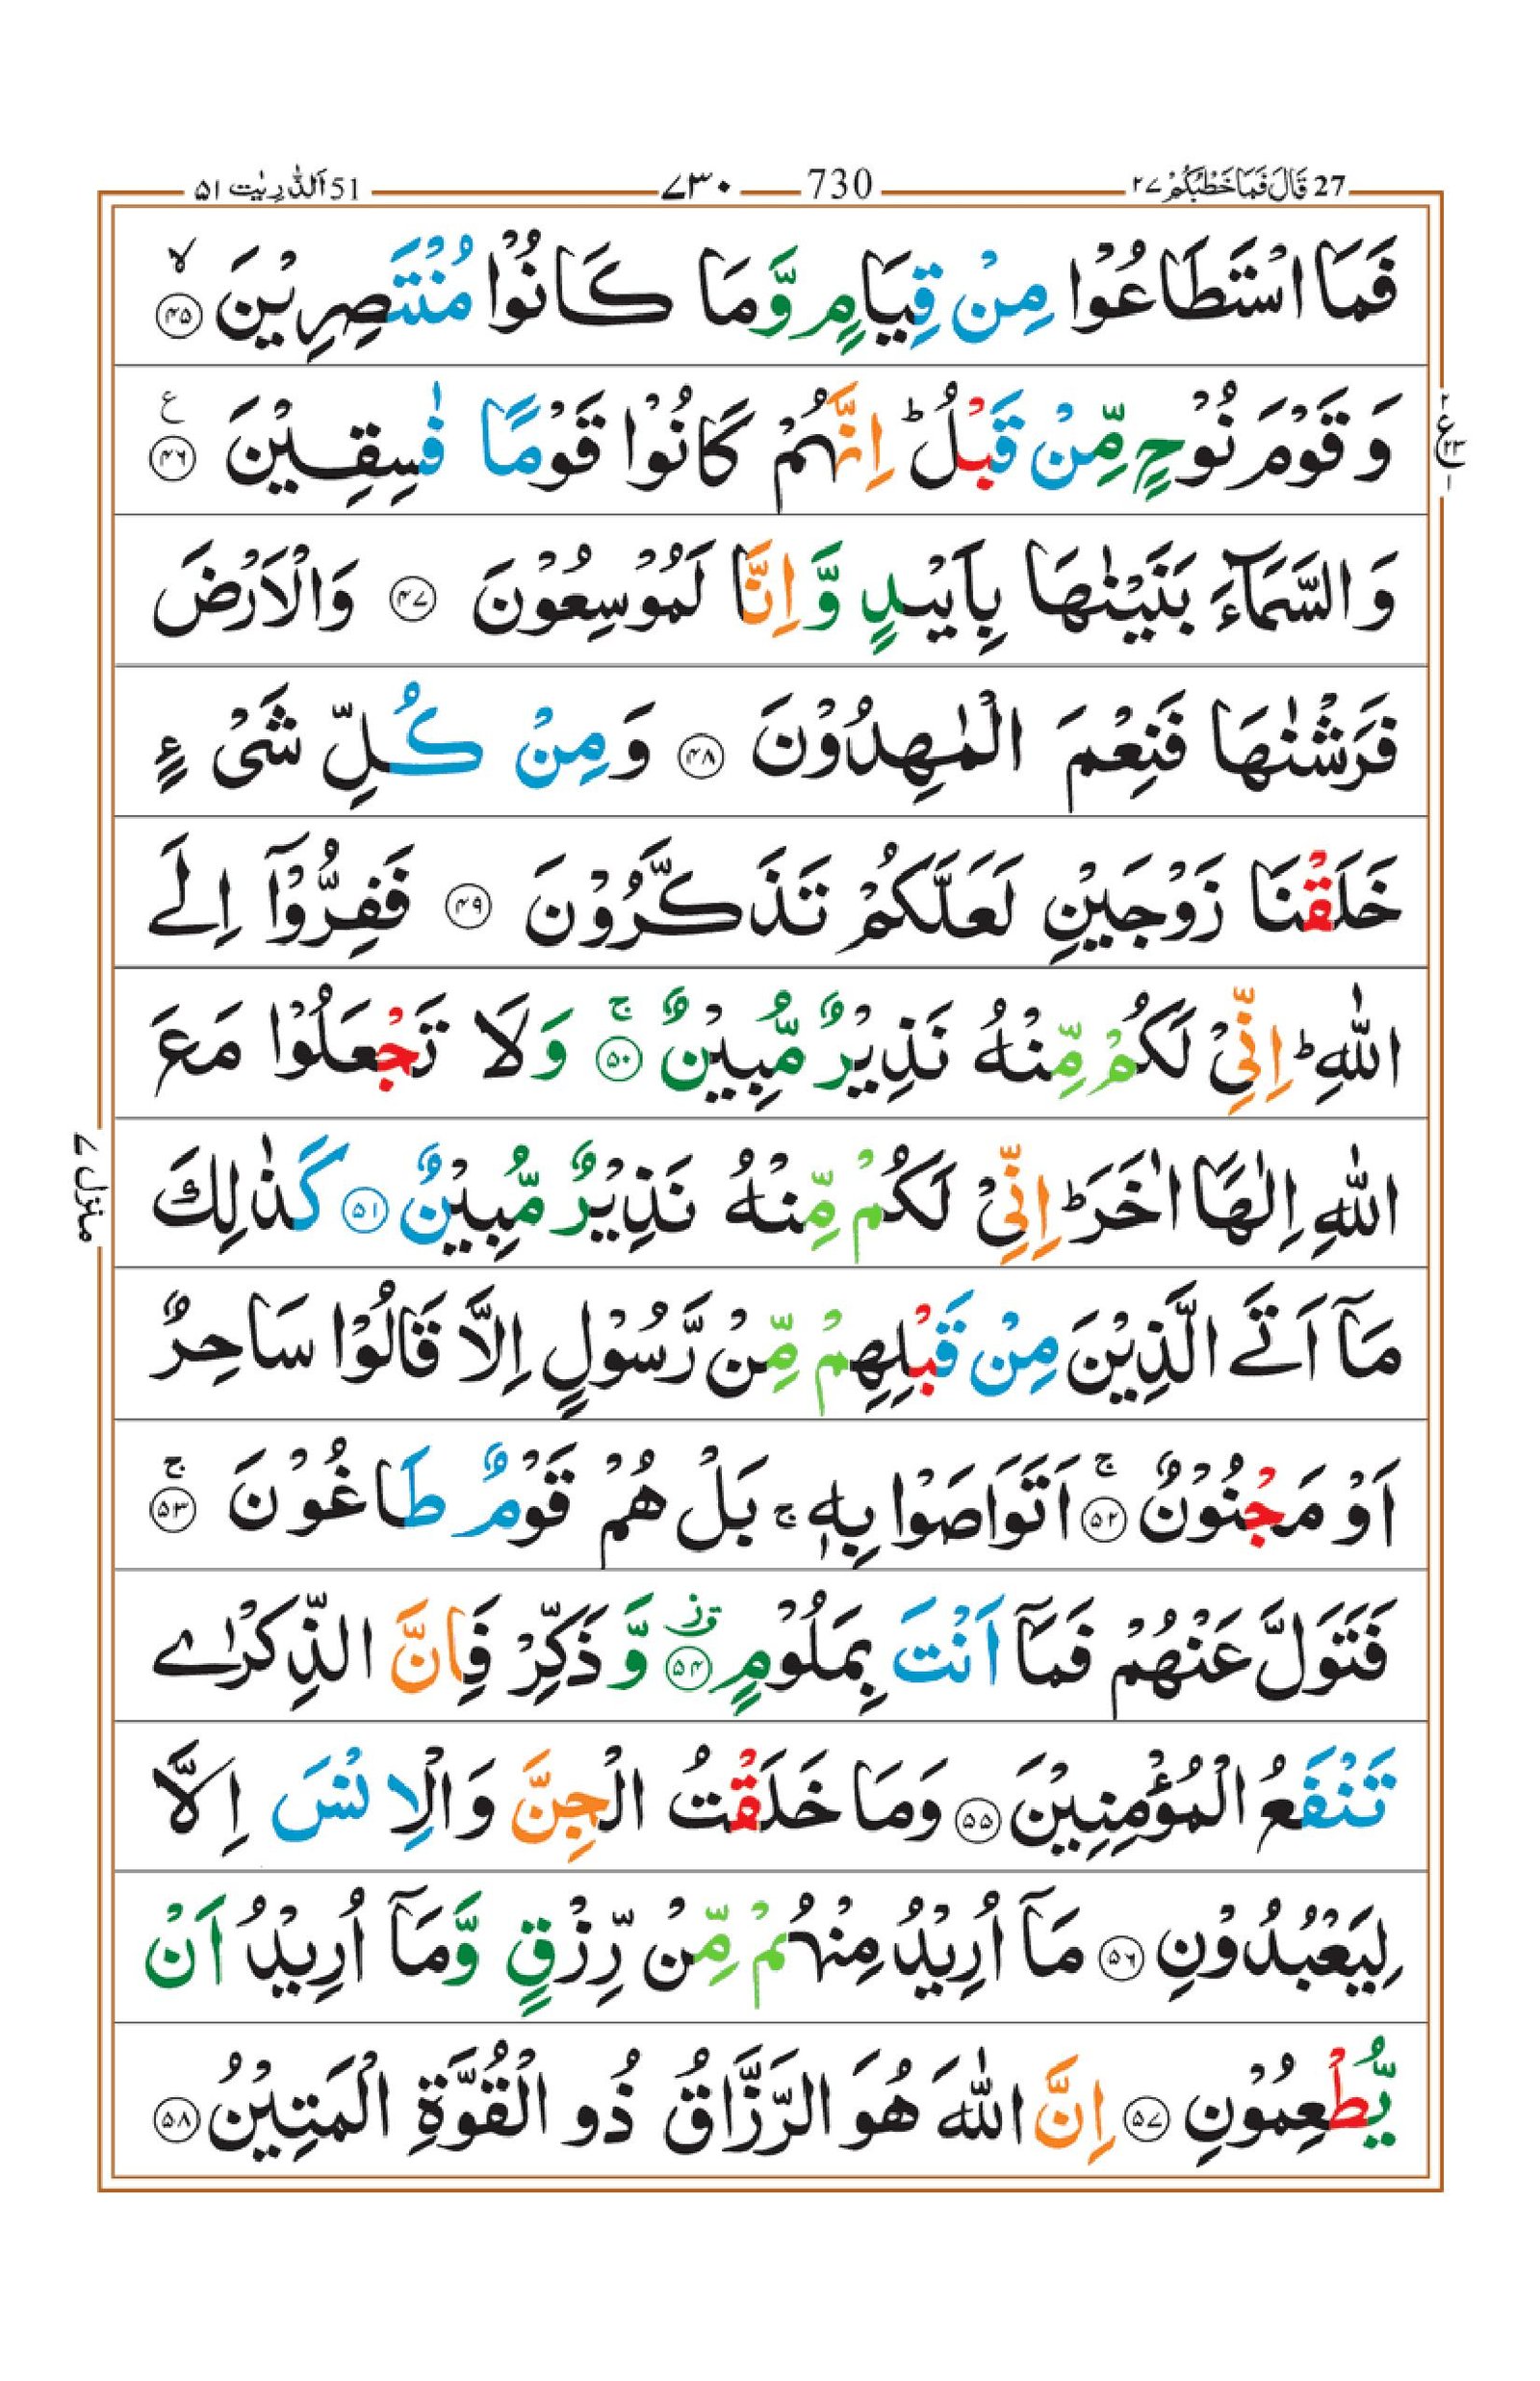 27 قَالَ فَمَا خَطْبُكُمْ ۲۷ 730 ۷۳۰ 51 اَلذّٰرِیٰت ۵۱
فَمَا اسْتَطَاعُوْا مِنْ قِیَامٍ وَّمَا كَانُوْا مُنْتَصِرِیْنَ ۙ﴿۴۵﴾
وَ قَوْمَ نُوْحٍ مِّنْ قَبْلُ ؕ اِنَّهُمْ كَانُوْا قَوْمًا فٰسِقِیْنَ ﴿۴۶﴾ ع
۲ ع ۲۳ ۱
وَ السَّمَآءَ بَنَیْنٰهَا بِاَیْىدٍ وَّ اِنَّا لَمُوْسِعُوْنَ ﴿۴۷﴾ وَالْاَرْضَ
فَرَشْنٰهَا فَنِعْمَ الْمٰهِدُوْنَ ﴿۴۸﴾ وَمِنْ كُلِّ شَیْ ءٍ
خَلَقْنَا زَوْجَیْنِ لَعَلَّكُمْ تَذَكَّرُوْنَ ﴿۴۹﴾ فَفِرُّوْۤا اِلَی
اللّٰهِ ؕ اِنِّیْ لَكُمْ مِّنْهُ نَذِیْرٌ مُّبِیْنٌ ۚ﴿۵۰﴾ وَ لَا تَجْعَلُوْا مَعَ
اللّٰهِ اِلٰهًا اٰخَرَ ؕ اِنِّیْ لَكُمْ مِّنْهُ نَذِیْرٌ مُّبِیْنٌ ﴿۵۱﴾ كَذٰلِكَ
منزل ۷
مَاۤ اَتَی الَّذِیْنَ مِنْ قَبْلِهِمْ مِّنْ رَّسُوْلٍ اِلَّا قَالُوْا سَاحِرٌ
اَوْ مَجْنُوْنٌ ۚ﴿۵۲﴾ اَتَوَاصَوْا بِهٖ ۚ بَلْ هُمْ قَوْمٌ طَاغُوْنَ ۚ﴿۵۳﴾
فَتَوَلَّ عَنْهُمْ فَمَاۤ اَنْتَ بِمَلُوْمٍ ٭۫﴿۵۴﴾ وَّ ذَكِّرْ فَاِنَّ الذِّكْرٰی
تَنْفَعُ الْمُؤْمِنِیْنَ ﴿۵۵﴾ وَمَا خَلَقْتُ الْجِنَّ وَالْاِنْسَ اِلَّا
لِیَعْبُدُوْنِ ﴿۵۶﴾ مَاۤ اُرِیْدُ مِنْهُمْ مِّنْ رِّزْقٍ وَّمَاۤ اُرِیْدُ اَنْ
یُّطْعِمُوْنِ ﴿۵۷﴾ اِنَّ اللّٰهَ هُوَ الرَّزَّاقُ ذُو الْقُوَّةِ الْمَتِیْنُ ﴿۵۸﴾